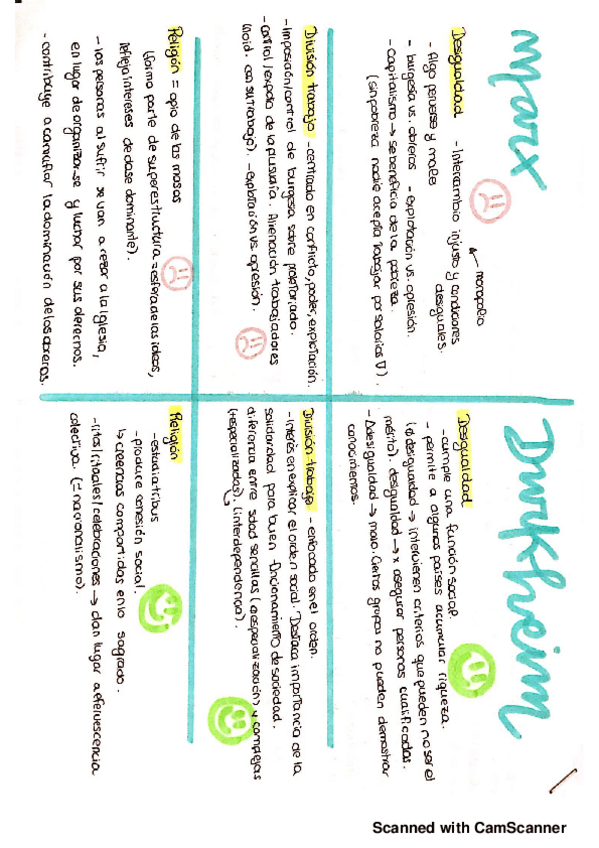 Marx
Desigualdad - Intercambio injusto y condiciones
monopolio
desiguales.
- Algo perverso y malo
- burgesía vs. obreros - explotación vs. opresión.
- Capitalismo → se beneficia de la pobreza.
(sin pobreza nadie acepta trabajar por salarios ↓).
División trabajo - centrado en conflicto, poder, explotación.
- Imposición/control de burgesía sobre proletariado.
- Control/expolio de la plusvalía. Alienación trabajadores
(no id. con su trabajo). - explotación vs. opresión.
Religión = opio de las masas
(forma parte de superestructura = esfera de las ideas,
refleja intereses de clase dominante).
- las personas al sufrir se van a rezar a la Iglesia,
en lugar de organizarse y luchar por sus derechos.
- contribuye a camuflar la dominación de los obreros.
Durkheim
Desigualdad
- cumple una función social
- permite a algunos países acumular riqueza.
desigualdad → intervienen criterios que pueden no ser el
mérito). desigualdad → x asegurar personas cualificadas.
- desigualdad → malo. Ciertos grupos no pueden demostrar
conocimientos.
División trabajo - enfocada en el orden.
- Interés en explicar el orden social. Destaca importancia de la
solidaridad para buen funcionamiento de sociedad.
diferencia entre sdad sencillas (especialización) y complejas
(+especializadas). (interdependencia).
Religión
- estudia tribus
- produce cohesión social.
↳ creencias compartidas en lo sagrado.
- ritos/rituales/celebraciones → dan lugar a efervescencia
colectiva. (= nacionalismo).
Scanned with CamScanner